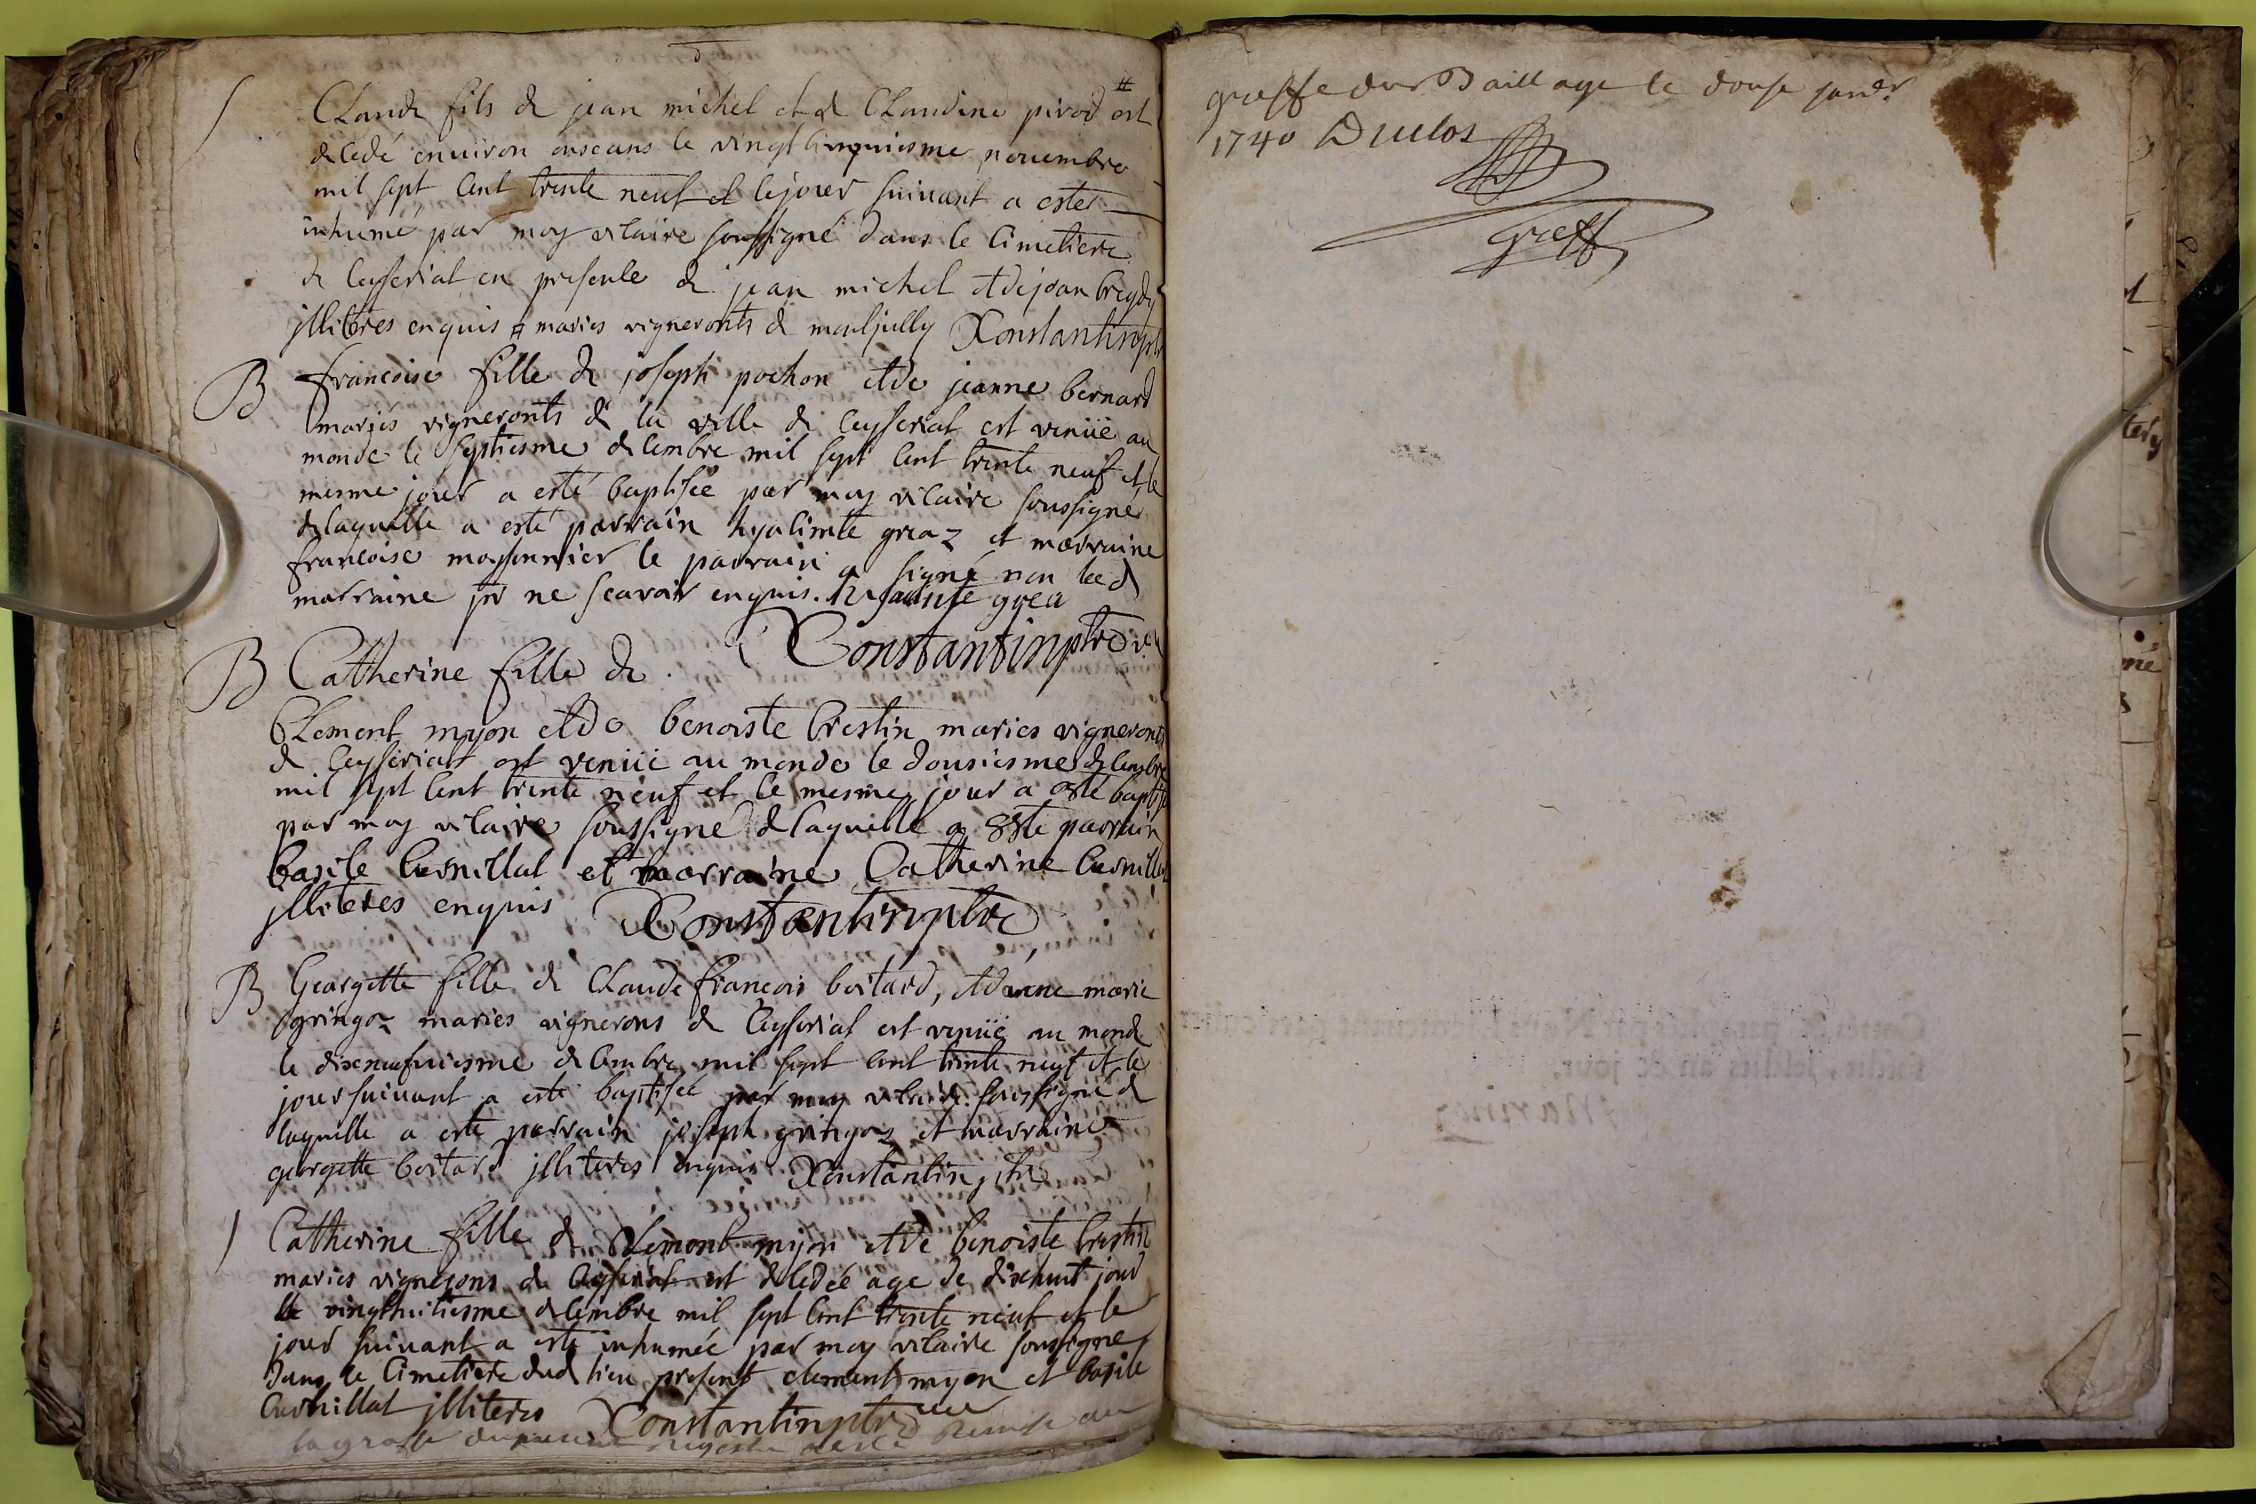 Claude fils de jean michel et de Claudine pirod # est
decedé enuiron onse ans le vingt cinquiesme nouembre
mil sept cent trente neuf et le jour suiuant a esté
inhumé par moy vicaire soussigné dans le cimetiere
de Ceyseriat en presence de jean michel et de jean
illiteres enquis # maries vigneronts de montjully Constantin ptre
B francoise fille de joseph pochon et de jeanne bernard
mariés vigneronts de la ville de Ceyseriat est venüe au
monde le septiesme decembre mil sept cent trente neuf et le
mesme jour a esté baptisée par moy vicaire soussigné
de laquelle a esté parrain hyacinte greaz et marraine
francoise moyssonnier le parrain a signé non lad
marraine pr ne scavoir enquis. hyacinte grea
Constantin ptre vic
B Catherine fille de
Clement myon et de benoiste Crestin maries vigneronts
de Ceyseriat est venüe au monde le dousiesme decembre
mil sept cent trente neuf et le mesme jour a esté baptisé
par moy vicaire soussigné de laquelle a esté parrain
basile Curnillat et marraine Catherine Curnillat
illiteres enquis Constantin ptre
B Georgette fille de Claude francois boitard, et danne marie
gringoz maries vignerons de Ceyseriat est venüe au monde
le diseneufuiesme decembre mil sept cent trente neuf et le
jour suiuant a esté baptisée par moy vicaire soussigné de
laquelle a esté parrain joseph gringoz et marraine
georgette boitard illiteres enquis Constantin ptre
Catherine fille de Clement myon et de benoiste Crestin
maries vignerons de Ceyseriat est decedée age de disehuit jour
le vingthuitiesme decembre mil sept cent trente neuf et le
jour suiuant a esté inhumée par moy vicaire soussigné
dans le cimetiere dud lieu present clement myon et basile
Curnillat illiteres Constantin ptre vic
la grosse du present registre a esté remise au
greffe du Bailliage le douse janer
1740 Duclos
Greff